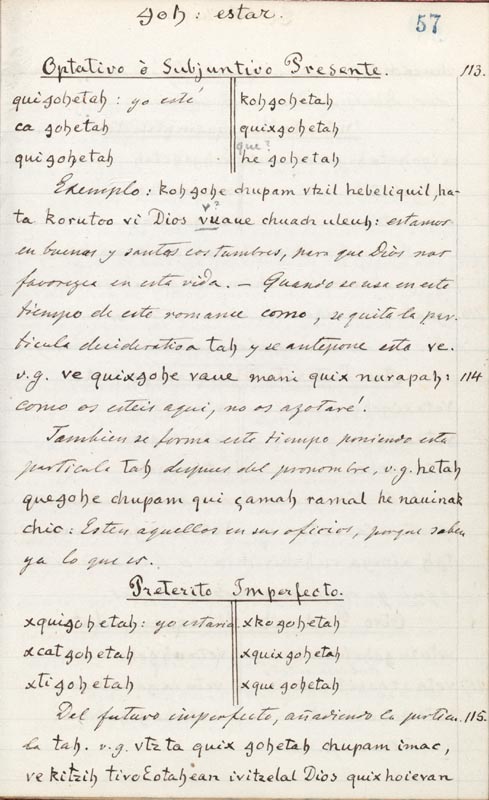 goh: estar.
57
Optativo ò Subjuntivo Presente. 113.
quigohetah: yo esté kohgohetah
ca gohetah quixgohetah
que?
quigohetah he gohetah
Exemplo: kohgohe chupam vtzil hebeliquil, ha-
v?
ta korutoo vi Dios vuaue chuach uleuh: estamos
en buenas y santas costumbres, para que Dios nos
favorezca en esta vida. — Quando se usa en este
tiempo de este romance como, se quita la par-
ticula deciderativa tah y se antepone esta ve.
v.g. ve quixgohe vaue mani quix nurapah: 114
como os esteis aqui, no os azotaré.
Tambien se forma este tiempo poniendo esta
particula tah despues del pronombre, v.g. hetah
quegohe chupam qui çamah ramal he nauinak
chic: Esten aquellos en sus oficios, porque saben
ya lo que es.
Preterito Imperfecto.
xquigohetah: yo estaria xkogohetah
xcatgohetah xquixgohetah
xtigohetah xque gohetah
Del futuro imperfecto, añadiendo la particu- 115.
la tah. v.g. vtzta quix gohetah chupam imac,
ve kitzih tivoEotahean ivitzelal Dios quixhoievan